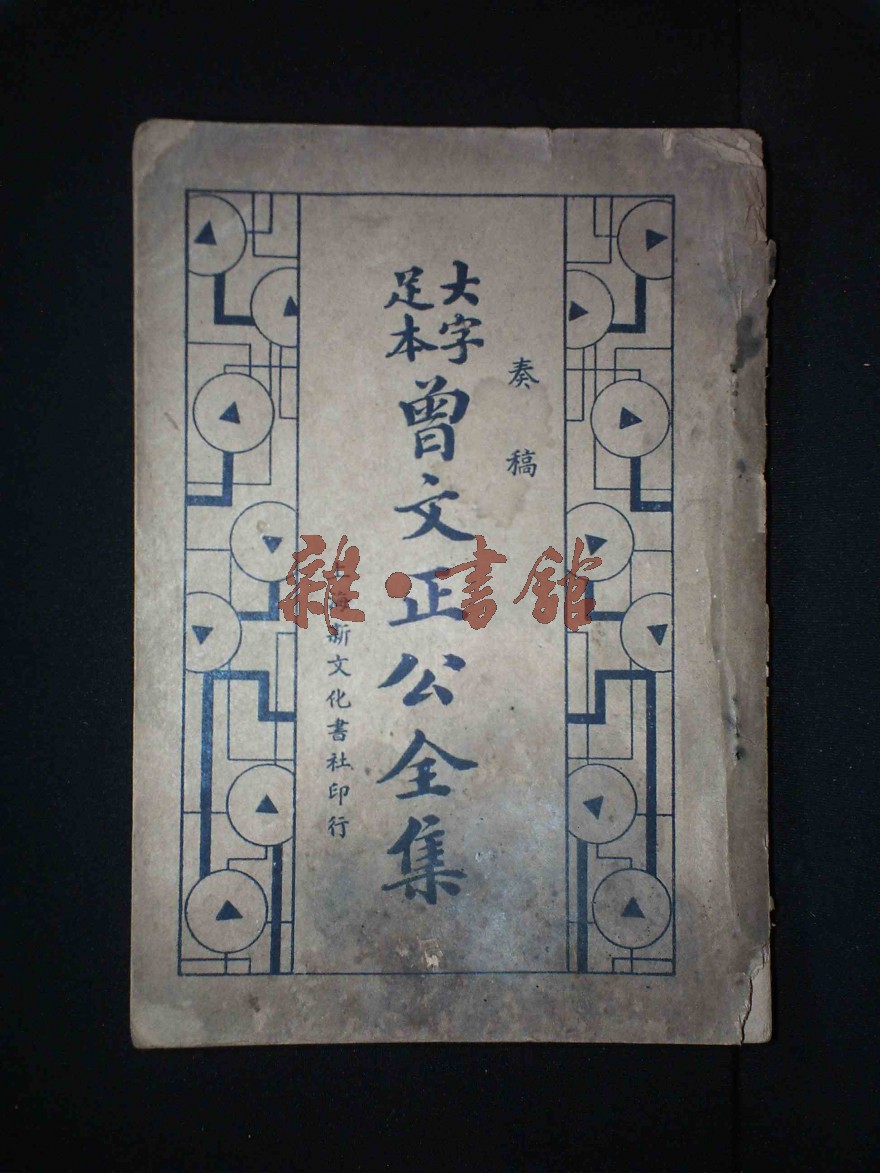 奏稿
大字
足本
曾文正公全集
上海新文化書社印行
雜·書館